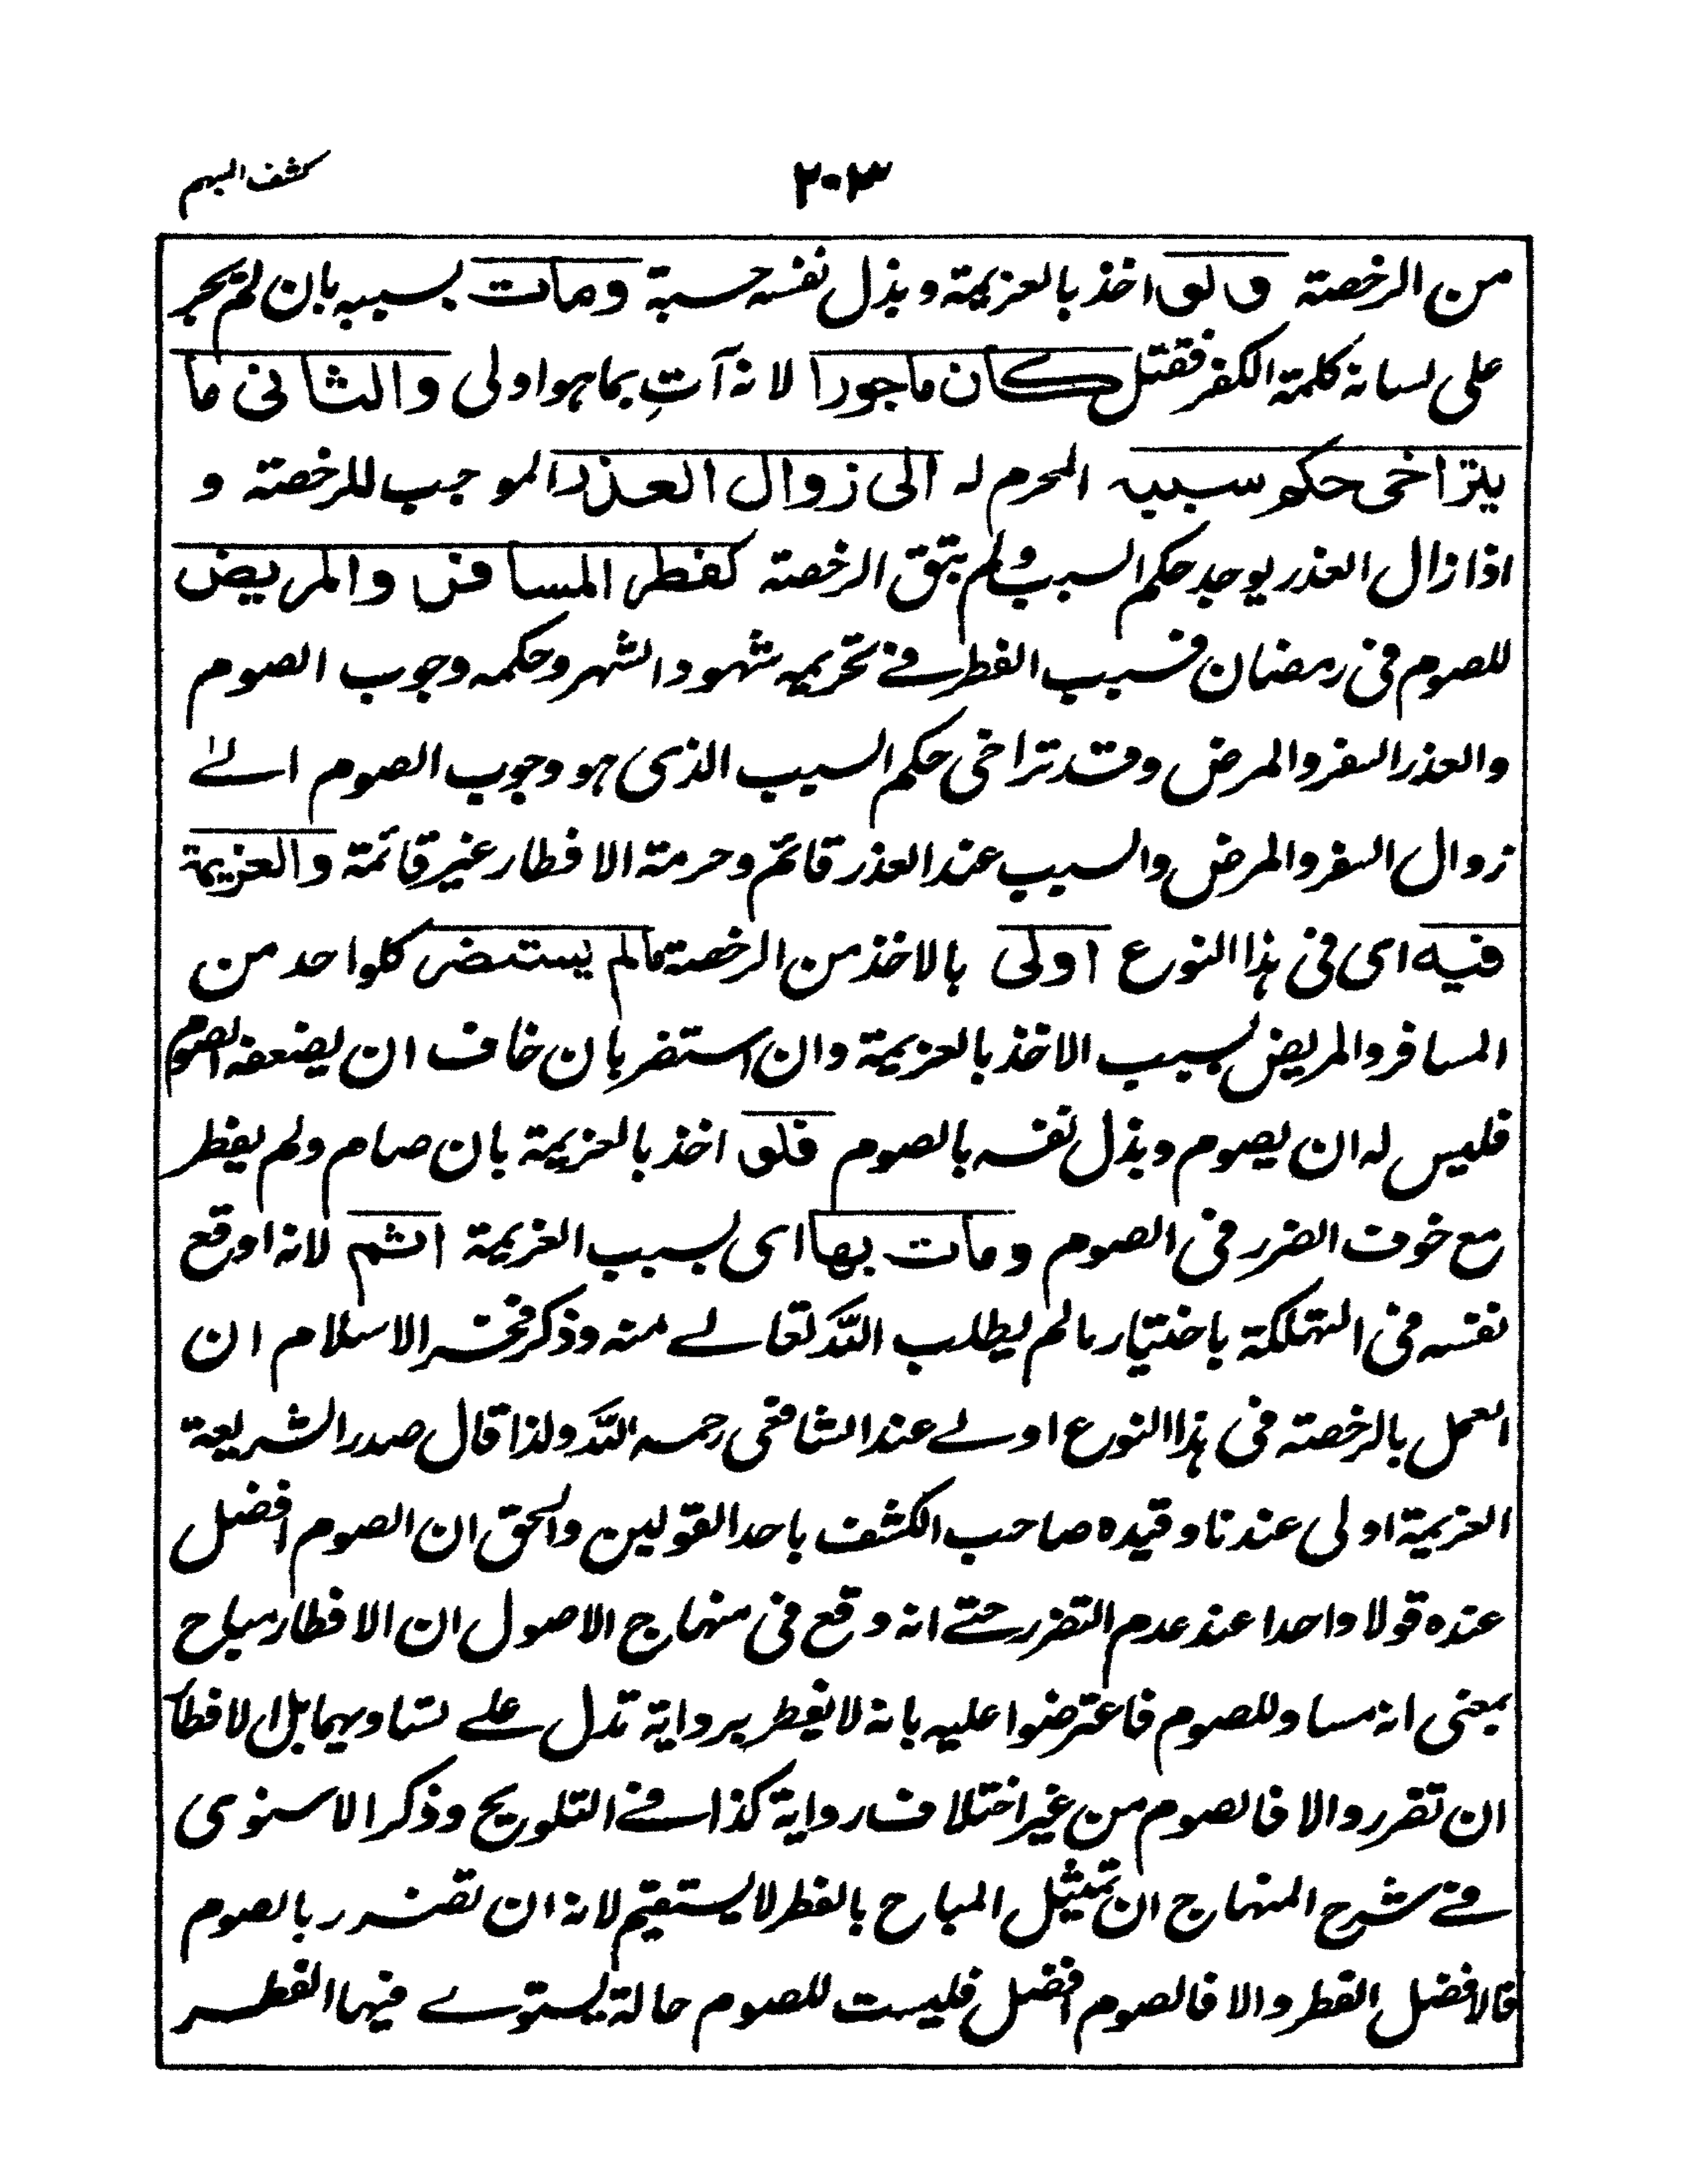 كشف المبهم
٢٠٣
من الرخصة ولو اخذ بالعزيمة وبذل نفسه حسبة ومات بسببه بان لم يجر
على لسانه كلمة الكفر فقتل كان ماجورا لانه آتِ بما هو اولى والثانى ما
يتراخى حكم سببه المحرم له الى زوال العذر الموجب للرخصة و
اذا زال العذر يوجد حكم السبب ولم تبق الرخصة كفطر المسافر والمريض
للصوم فى رمضان فسبب الفطر فى تحريمه شهود الشهر وحكمه وجوب الصوم
والعذر السفر والمرض وقد تراخى حكم السبب الذى هو وجوب الصوم الى
زوال السفر والمرض والسبب عند العذر قائم وحرمة الافطار غير قائمة والعزيمة
فيه اى فى هذا النوع اولى بالاخذ من الرخصة مالم يستضر كلواحد من
المسافر والمريض بسبب الاخذ بالعزيمة وان استضر بان خاف ان يضعفه الصوم
فليس له ان يصوم وبذل نفسه بالصوم فلو اخذ بالعزيمة بان صام ولم يفطر
مع خوف الضرر فى الصوم ومات بها اى بسبب العزيمة اثم لانه اوقع
نفسه فى التهلكة باختيار مالم يطلب الله تعالى منه وذكر فخر الاسلام ان
العمل بالرخصة فى هذا النوع اولى عند الشافعى رحمه الله ولذا قال صدر الشريعة
العزيمة اولى عندنا وقيده صاحب الكشف باحد القولين والحق ان الصوم افضل
عنده قولا واحدا عند عدم التضرر حتى انه وقع فى منهاج الاصول ان الافطار مباح
بمعنى انه مساو للصوم فاعترضوا عليه بانه لا يفطر برواية تدل على تساويهما بل الافطار
ان تضرر والا فالصوم من غير اختلاف رواية كذا فى التلويح وذكر الاسنوى
فى شرح المنهاج ان تمثيل المباح بالفطر لا يستقيم لانه ان تضرر بالصوم
فالافضل الفطر والا فالصوم افضل فليست للصوم حالة يستوى فيها الفطر